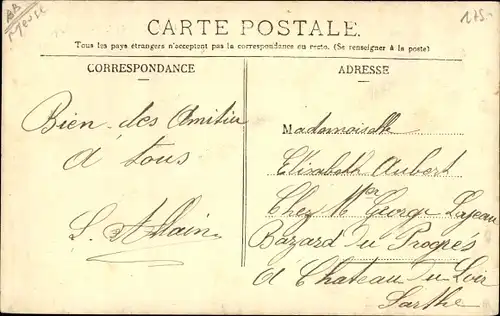 CARTE POSTALE.
Tous les pays étrangers n'acceptent pas la correspondance au recto. (Se renseigner à la poste)
CORRESPONDANCE
Bien des Amitiés
à tous
L. Allain
ADRESSE
Mademoiselle
Elisabeth Aubert
Chez Mr George Lajeau
Bazard du Progrès
à Chateau du Loir
Sarthe